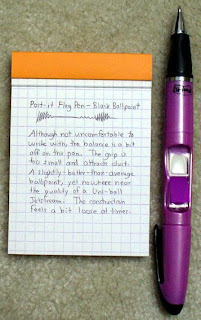 Post-it Flag Pen - Black Ballpoint
Although not uncomfortable to
write with, the balance is a bit
off on the pen. The grip is
too small and attracts dust.
A slightly-better-than-average
ballpoint, yet nowhere near
the quality of a Uni-ball
Jetstream. The construction
feels a bit loose at times.